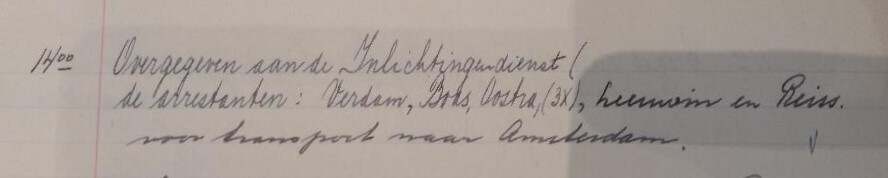 14⁰⁰ Overgegeven aan de Inlichtingendienst (
de arrestanten: Verdam, Boas, Oostra, (3x), Leeuwin en Reiss.
voor transport naar Amsterdam.